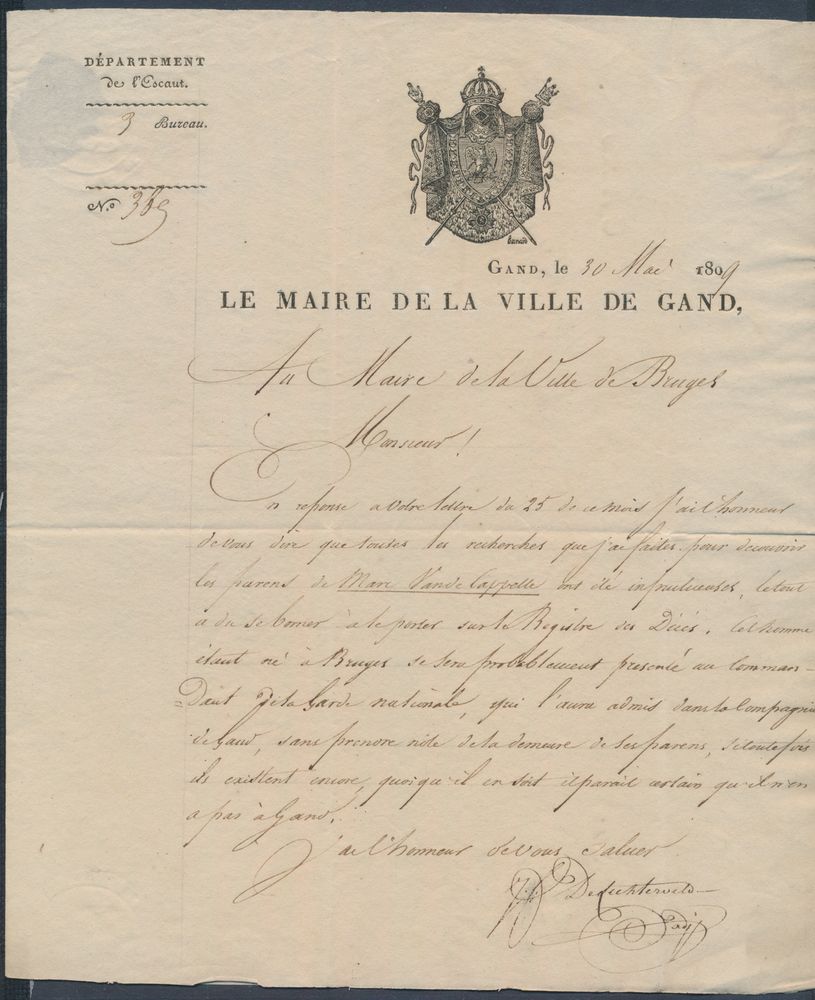 DÉPARTEMENT
de l'Escaut.
3 Bureau.
N.o 365
GAND, le 30 Mai 1809
LE MAIRE DE LA VILLE DE GAND,
Au Maire de la Ville de Bruges
Monsieur !
En reponse a votre lettre du 25 de ce mois j'ai l'honneur
de vous dire que toutes les recherches que j'ai faites pour decouvrir
les parens de Marc Vande Cappelle ont été infructueuses, le tout
a du se borner à le porter sur le Registre des Décés. Cet homme
étant né à Bruges se sera probablement presenté au Comman-
=dant de la Garde nationale, qui l'aura admis dans la Compagnie
de Gand, sans prendre note de la demeure de ses parens, si toutefois
ils existent encore, quoiqu'il en soit il parait certain qu'il n'en
a pas à Gand.
J'ai l'honneur de vous saluer
Delichtervelde